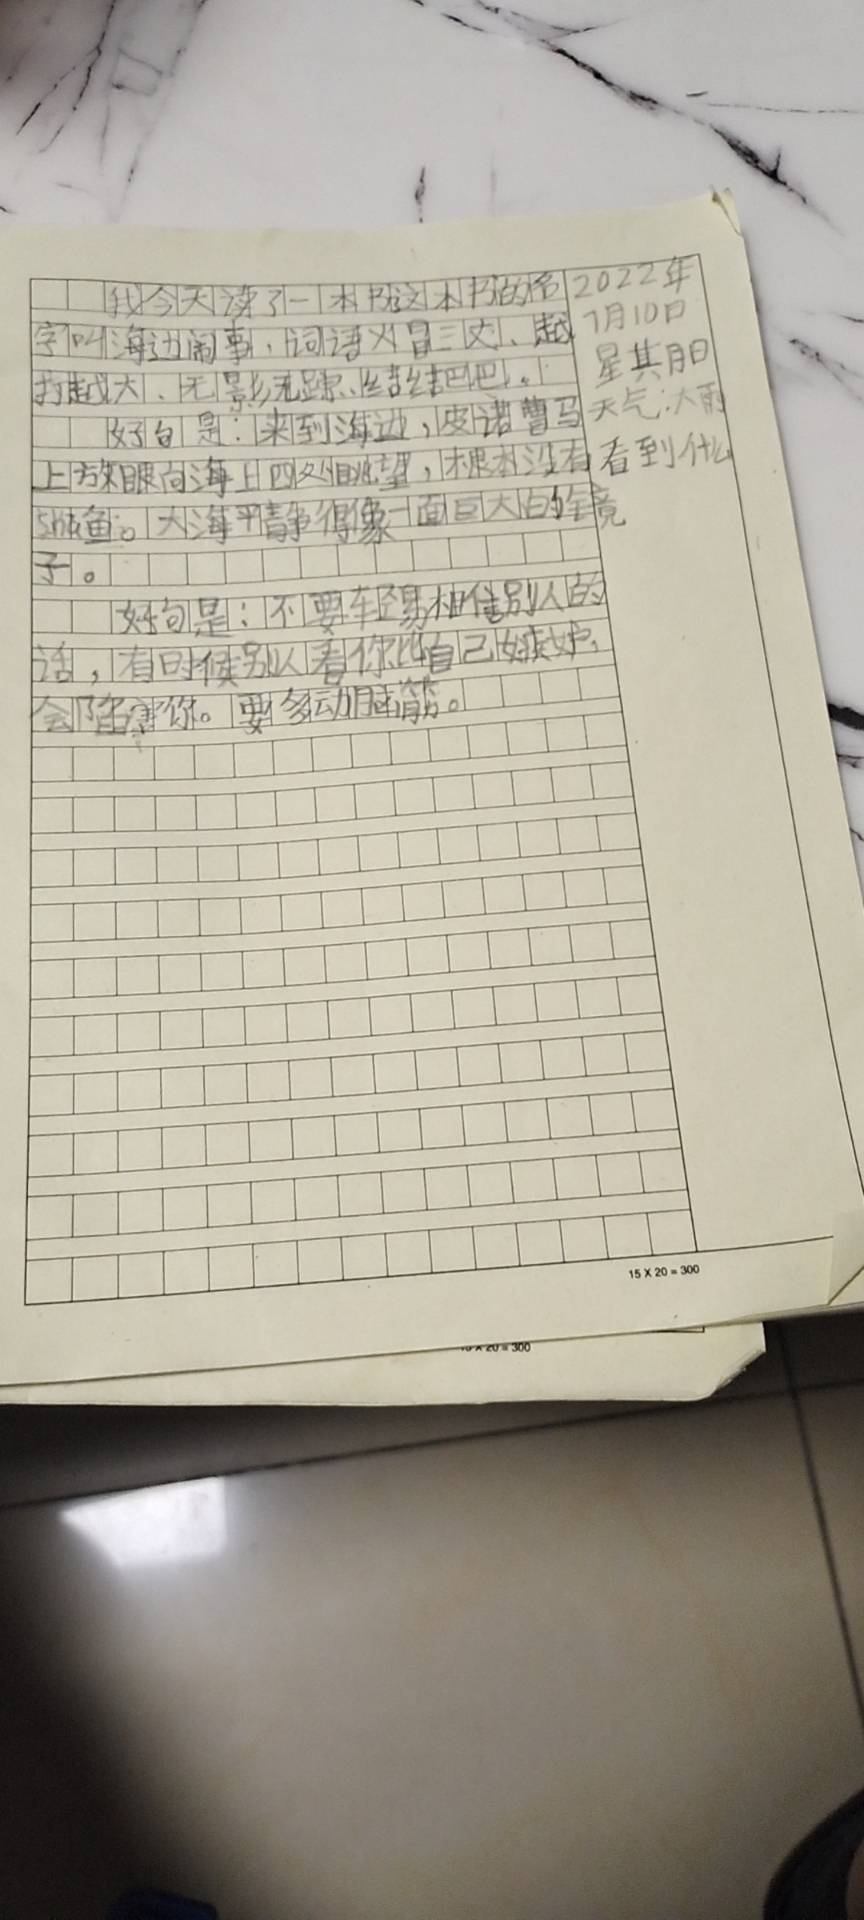 我今天读了一本书这本书的名
字叫海边闹事，词语火冒三丈、越
打越大、无影无踪、结结巴巴。
好句是：来到海边，皮诺曹马
上放眼向海上四处眺望，根本没有看到什么
sha鱼。大海平静得像一面巨大的镜
子。
好句是：不要轻易相信别人的
话，有时候别人看你比自己好嫉妒，
会陷害你。要多动脑筋。
2022年
7月10日
星其月日
天气：大雨
15 X 20 = 300
15 X 20 = 300